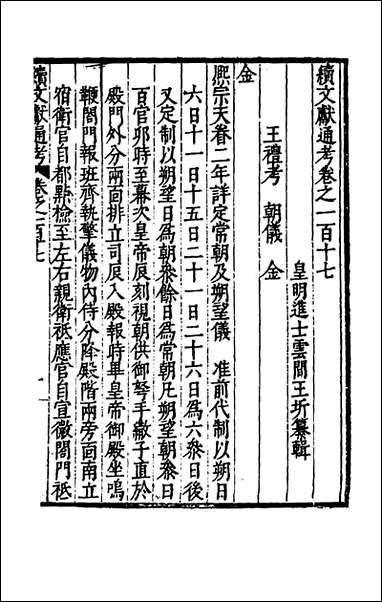 續文獻通考卷之一百十七
皇明進士雲間王圻纂輯
王禮考 朝儀 金
金
熈宗天眷二年詳定常朝及朔望儀 准前代制以朔日
六日十一日十五日二十一日二十六日爲六叅日後
又定制以朔望日爲朝叅餘日爲常朝凡朔望朝叅日
百官夘時至幕次皇帝辰刻視朝供御弩手繖子直於
殿門外分兩面排立司辰入殿報時畢皇帝御殿坐鳴
鞭閤門報班齊執擎儀物内侍分降殿階兩旁面南立
宿衛官自都㸃檢至左右親衛祗應官自宣徽閤門祗
續文獻通考 卷之一百十七 一